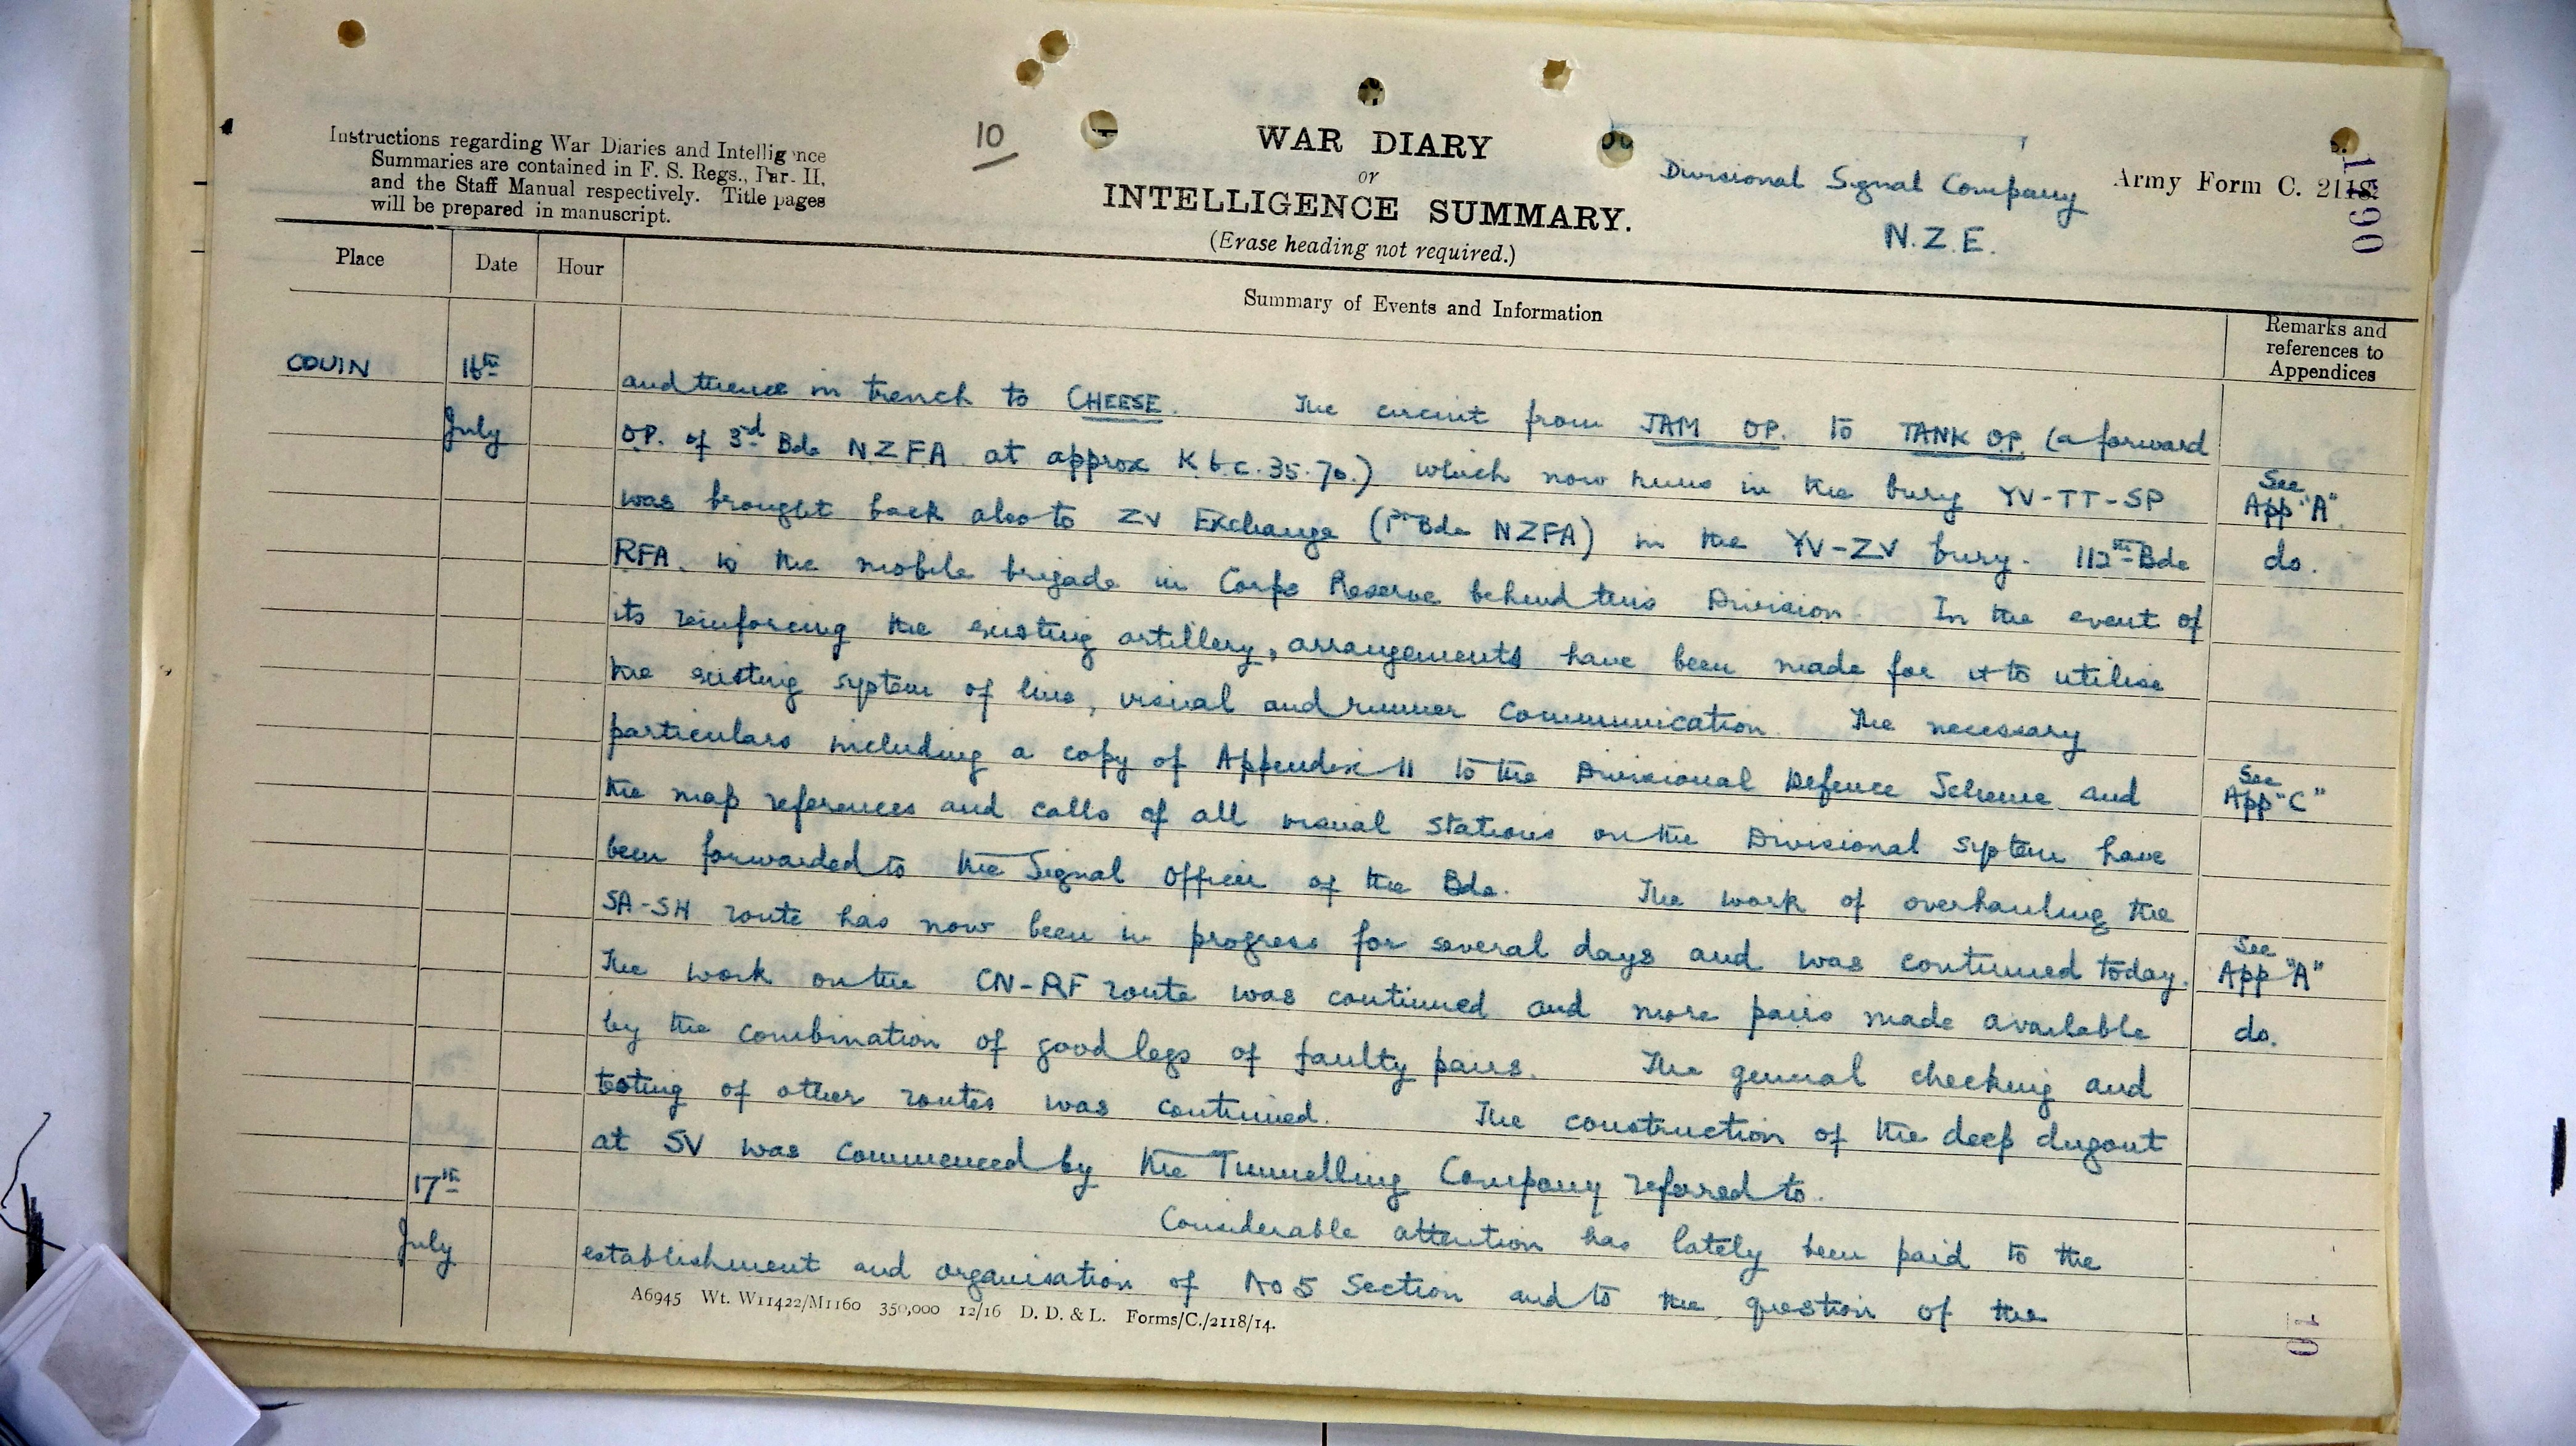 Instructions regarding War Diaries and Intelligence
Summaries are contained in F. S. Regs., Part II,
and the Staff Manual respectively. Title pages
will be prepared in manuscript.
10
WAR DIARY
or
INTELLIGENCE SUMMARY.
(Erase heading not required.)
Divisional Signal Company
N.Z.E.
Army Form C. 2118.
Place
Date
Hour
Summary of Events and Information
Remarks and
references to
Appendices
COUIN
16th
July
and thence in trench to CHEESE. The circuit from JAM OP. to TANK OP. (a forward
OP. of 3rd Bde NZFA at approx K6.c.35.70.) which now runs in the bury YV-TT-SP
See
App "A".
was brought back also to ZV Exchange (1st Bde NZFA) in the YV-ZV bury. 112th Bde
do.
RFA. is the mobile brigade in Corps Reserve behind this Division. In the event of
its reinforcing the existing artillery, arrangements have been made for it to utilise
the existing system of line, visual and runner communication. The necessary
particulars including a copy of Appendix 11 to the Divisional Defence Scheme and
See
App "C"
the map references and calls of all visual stations on the Divisional system have
been forwarded to the Signal Officer of the Bde. The work of overhauling the
SA-SH route has now been in progress for several days and was continued today.
See
App "A"
The work on the CN-RF route was continued and more pairs made available
do.
by the combination of good legs of faulty pairs. The general checking and
testing of other routes was continued. The construction of the deep dugout
at SV was commenced by the Tunnelling Company referred to.
17th
July
Considerable attention has lately been paid to the
establishment and organisation of No 5 Section and to the question of the
A6945 Wt. W11422/M1160 350,000 12/16 D. D. & L. Forms/C./2118/14.
10